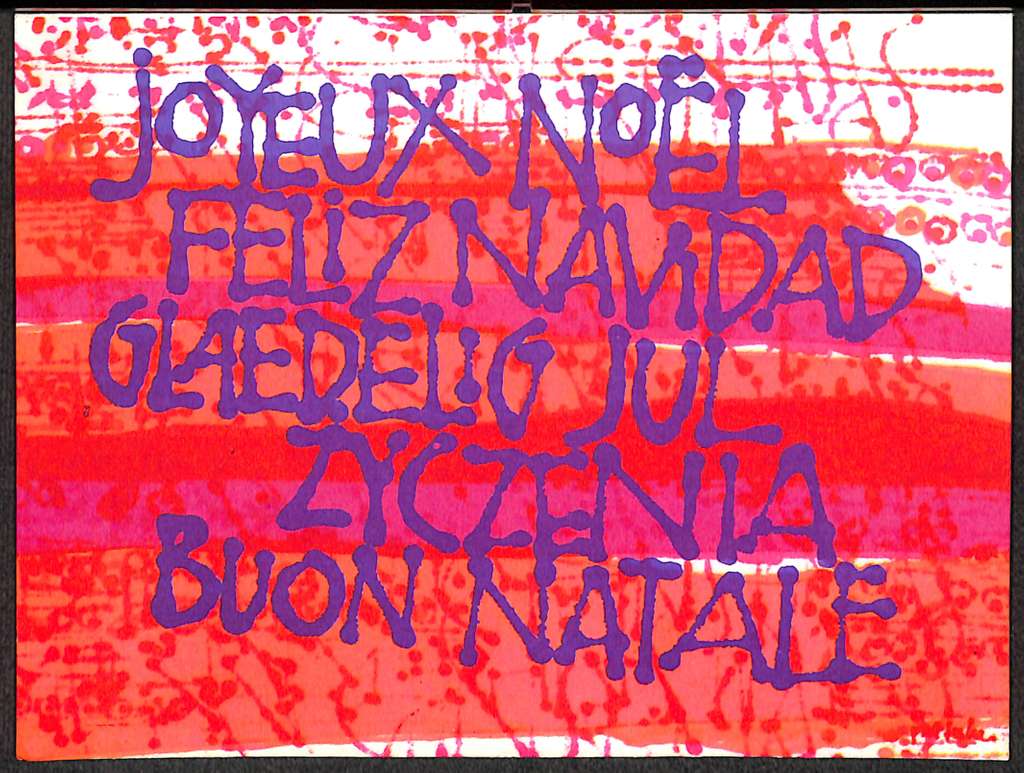 JOYEUX NOËL
FELIZ NAVIDAD
GLAEDELIG JUL
ZYCZENIA
BUON NATALE